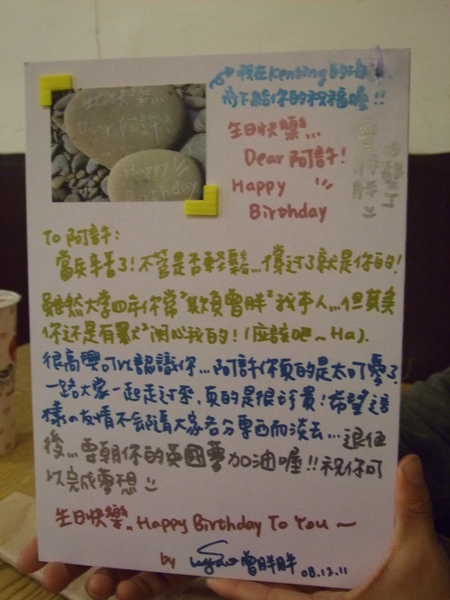 生日快樂...
Dear 阿許!
Happy
Birthday
我在Kenting的海
灣下給你的祝福喔!!
生日快樂...
Dear 阿許!
Happy
Birthday
To 阿許:
當兵辛苦了!不管是否輕鬆...撐過了就是你的!
雖然大學四年你常"欺負曾胖"我本人...但其實
你還是有默"關心我的!(應該吧~Ha).
很高興可以認識你...阿許你真的是太可愛了
一路大家一起走過來,真的是很可貴!希望這
樣の友情不會隨著大家各分東西而淡去...退伍
後...要朝你的英國夢加油喔!!祝你可
以完成夢想
生日快樂..Happy Birthday To You~
by 曾胖胖 08.13.11